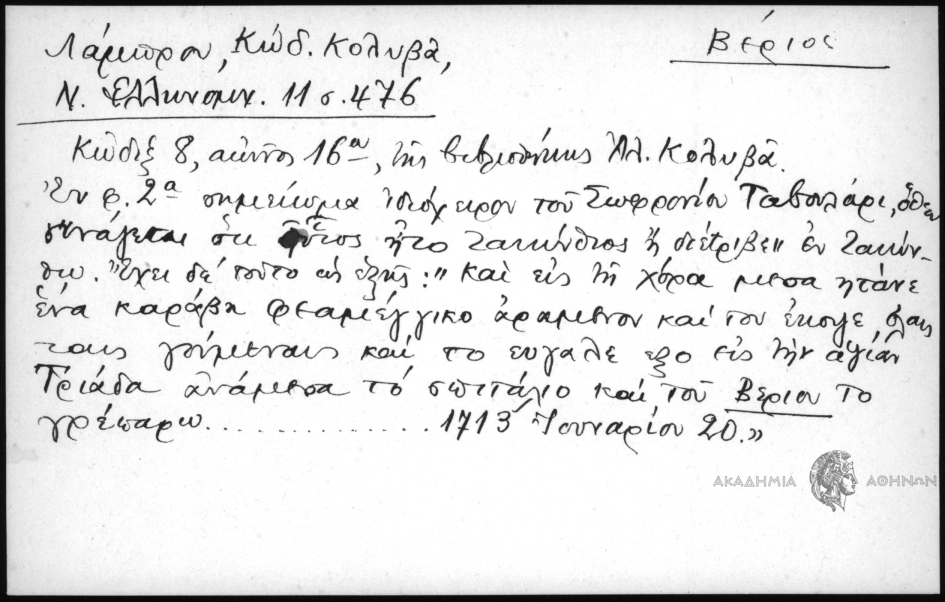 Λάμπρου, Κώδ. Κολυβᾶ, Βέριος
Ν. Ἑλληνομν. 11 σ. 476
Κῶδιξ 8, αἰῶνος 16ου, τῆς βιβλιοθήκης Ἀλ. Κολυβᾶ.
Ἐν φ. 2α σημείωμα ἰδιόχειρον τοῦ Σωφρονίου Ταβουλάρι, ὅθεν
συνάγεται ὅτι οὗτος ἦτο Ζακύνθιος ἢ διέτριβεν ἐν Ζακύν-
θῳ. Ἔχει δὲ τοῦτο ὡς ἑξῆς: "Καὶ εἰς τὴ χόρα μεσα ητάνε
ἑνα καράβη φιαμέγγικο ἀραμενον καὶ του ἐκοψε ὁλαις
ταις γούμεναις καὶ το ευγαλε εξο εἰς τὴν αγίαν
Τριάδα ἀνάμεσα τὸ σπιτάλιο καὶ τοῦ Βέριου το
γρέπαρω.............. 1713 Ἰουναρίου 20."
ΑΚΑΔΗΜΙΑ ΑΘΗΝΩΝ